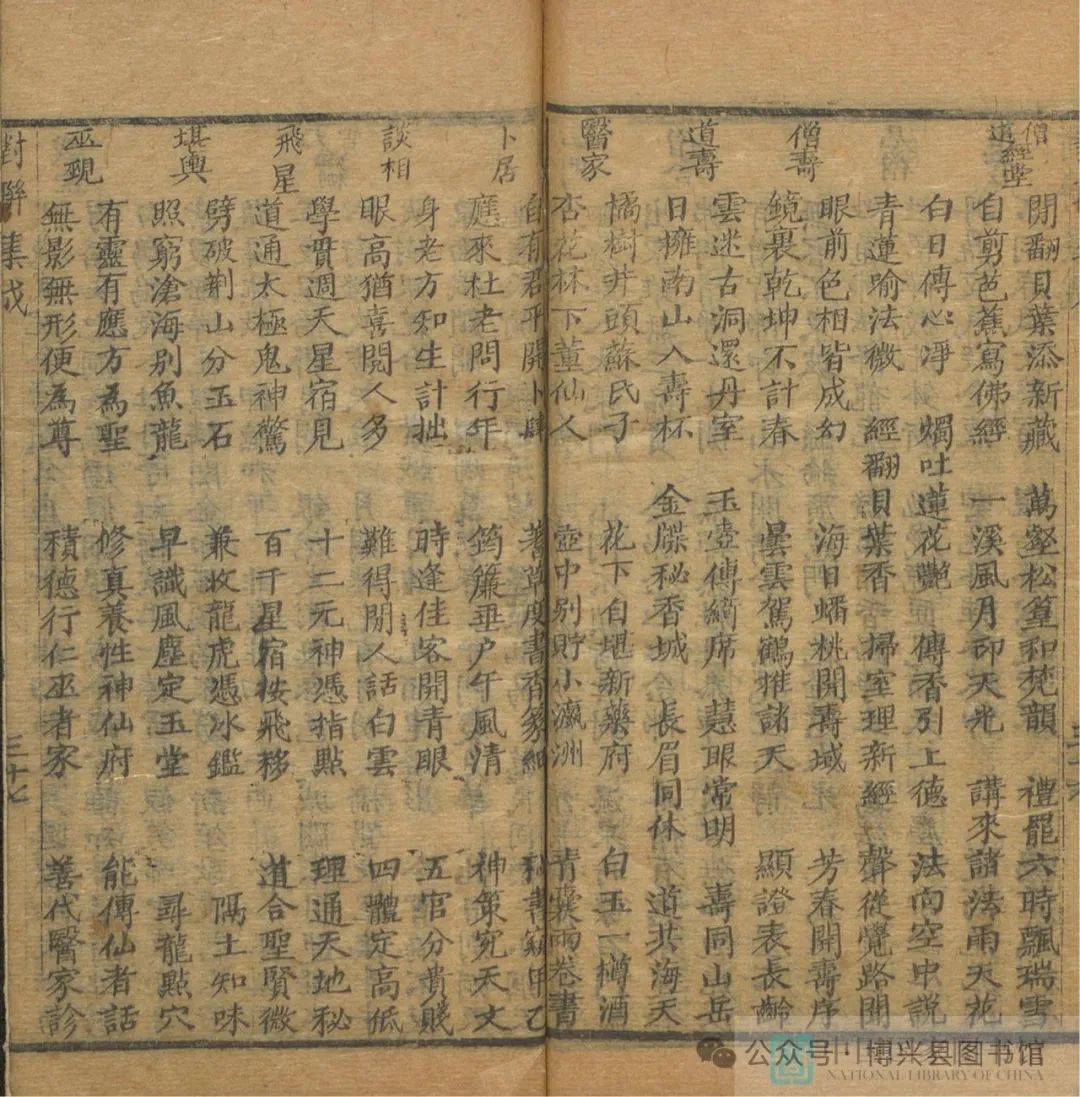 僧道經堂
閒翻貝葉添新藏　萬壑松篁和梵韻　禮罷六時飄瑞雪
自剪芭蕉寫佛經　一溪風月印天光　講來諸法雨天花
白日傳心淨　燭吐蓮花艷　傳香引上德　法向空中説
青蓮喻法微　經翻貝葉香　掃室理新經　聲從覺路聞
僧壽
眼前色相皆成幻　海日蟠桃開壽域　芳春開壽序
鏡裏乾坤不計春　曇雲駕鶴推諸天　顯證表長齡
道壽
雲迷古洞還丹室　玉壺傳綺席　慧眼常明　壽同山岳
日擁南山入壽杯　金牒秘香城　長眉同休　道共海天
醫家
橘樹井頭蘇氏子　花下白堪新藥府　白玉一樽酒
杏花林下董仙人　壺中別貯小瀛洲　青囊兩卷書
卜居
自有君平開卜肆　蓍草度書香篆細　秘書窺甲乙
應來杜老問行年　筠簾垂户午風清　神策究天文
談相
身老方知生計拙　時逢佳客開青眼　五官分貴賤
眼高猶喜閱人多　難得閒人話白雲　四體定高低
飛星
學貫週天星宿見　十二元神憑指點　理通天地秘
道通太極鬼神驚　百千星宿按飛移　道合聖賢微
堪輿
劈破荆山分玉石　兼收龍虎憑冰鑑　隔土知味
照窮滄海別魚龍　早識風塵定玉堂　尋龍點穴
巫覡
有靈有應方為聖　修真養性神仙府　能傳仙者話
無影無形便為尊　積德行仁巫者家　善代醫家診
對聯集成　三十七
公众号·博兴县图书馆
NATIONAL LIBRARY OF CHINA